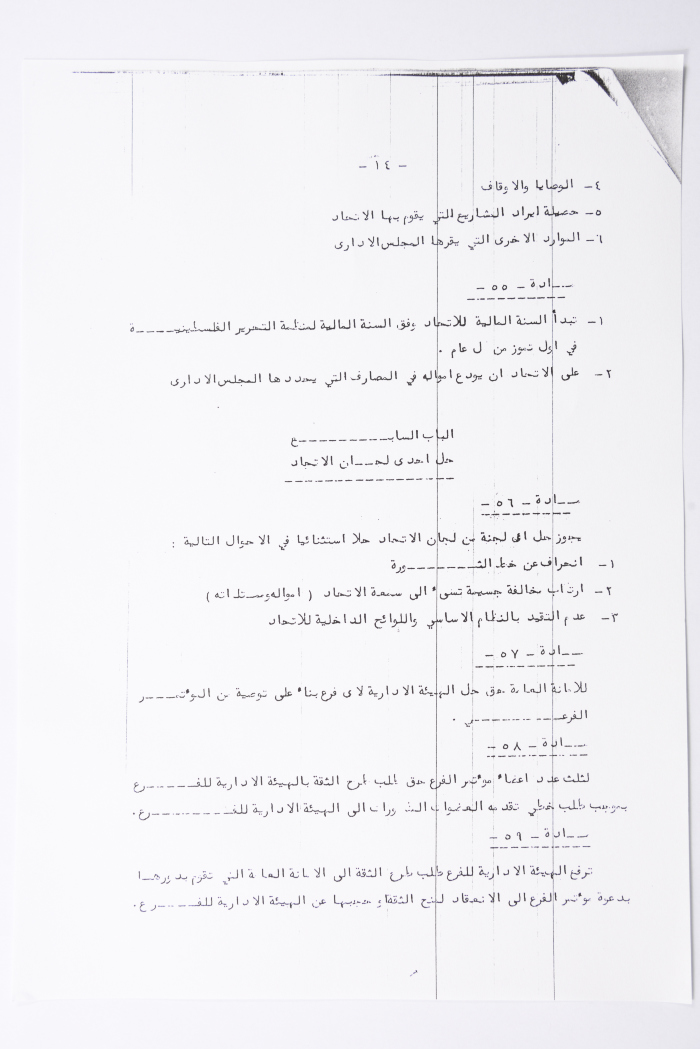 - ١٤ -
٤- الوصايا والاوقاف
٥- حصيلة ايراد المشاريع التي يقوم بها الاتحاد
٦- الموارد الاخرى التي يقرها المجلس الادارى
مــادة - ٥٥ -
١- تبدأ السنة المالية للاتحاد وفق السنة المالية لمنظمة التحرير الفلسطينيــــة
في اول تموز من كل عام .
٢- على الاتحاد ان يودع امواله في المصارف التي يحددها المجلس الادارى
الباب السابــــــــــع
حل احدى لجــان الاتحاد
مــادة - ٥٦ -
يجوز حل اى لجنة من لجان الاتحاد حلا استثنائيا في الاحوال التالية :
١- انحراف عن خط الثــــــــورة
٢- ارتكاب مخالفة جسيمة تسيء الى سمعة الاتحاد ( امواله وممتلكاته )
٣- عدم التقيد بالنظام الاساسي واللوائح الداخلية للاتحاد
مــادة - ٥٧ -
للامانة العامة حق حل الهيئة الادارية لاى فرع بناء على توصية من المؤتمــــر
الفرعــــــــــي .
مــادة - ٥٨ -
لثلث عدد اعضاء مؤتمر الفرع حق طلب طرح الثقة بالهيئة الادارية للفــــــرع
بموجب طلب خطي تقدمه العضوات المذكورات الى الهيئة الادارية للفــــــــــرع.
مــادة - ٥٩ -
ترفع الهيئة الادارية للفرع طلب طرح الثقة الى الامانة العامة التي تقوم بدورهــا
بدعوة مؤتمر الفرع الى الانعقاد لمنح الثقة او حجبها عن الهيئة الادارية للفـــــرع.